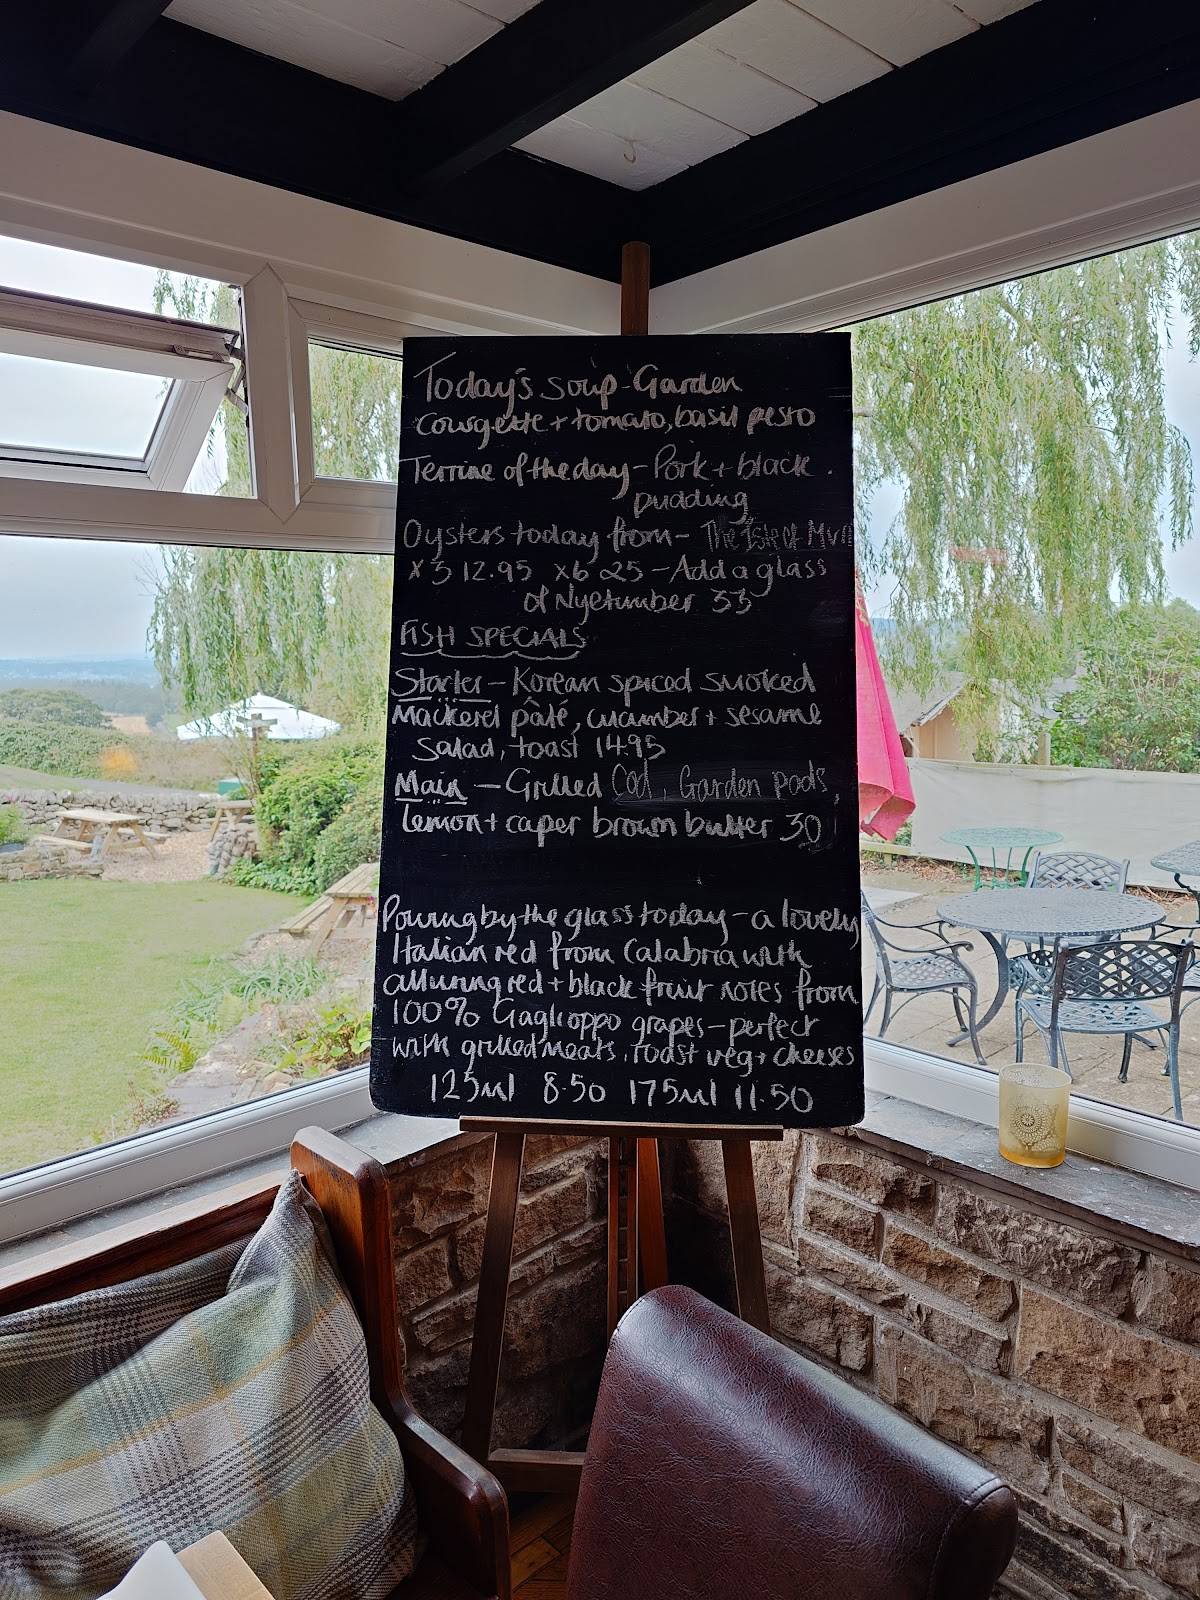 Today's soup - Garden
courgette + tomato, basil pesto
Terrine of the day - Pork + black
pudding
Oysters today from - The Isle of Mull
x 3 12.95 x6 25 - Add a glass
of Nyetimber 33
FISH SPECIALS
Starter - Korean spiced smoked
Mackerel pâté, cucumber + sesame
Salad, toast 14.95
Main - Grilled Cod, Garden pods,
Lemon + caper brown butter 30
Pouring by the glass today - a lovely
Italian red from Calabria with
alluring red + black fruit notes from
100% Gaglioppo grapes - perfect
with grilled meats, roast veg + cheeses
125ml 8.50 175ml 11.50